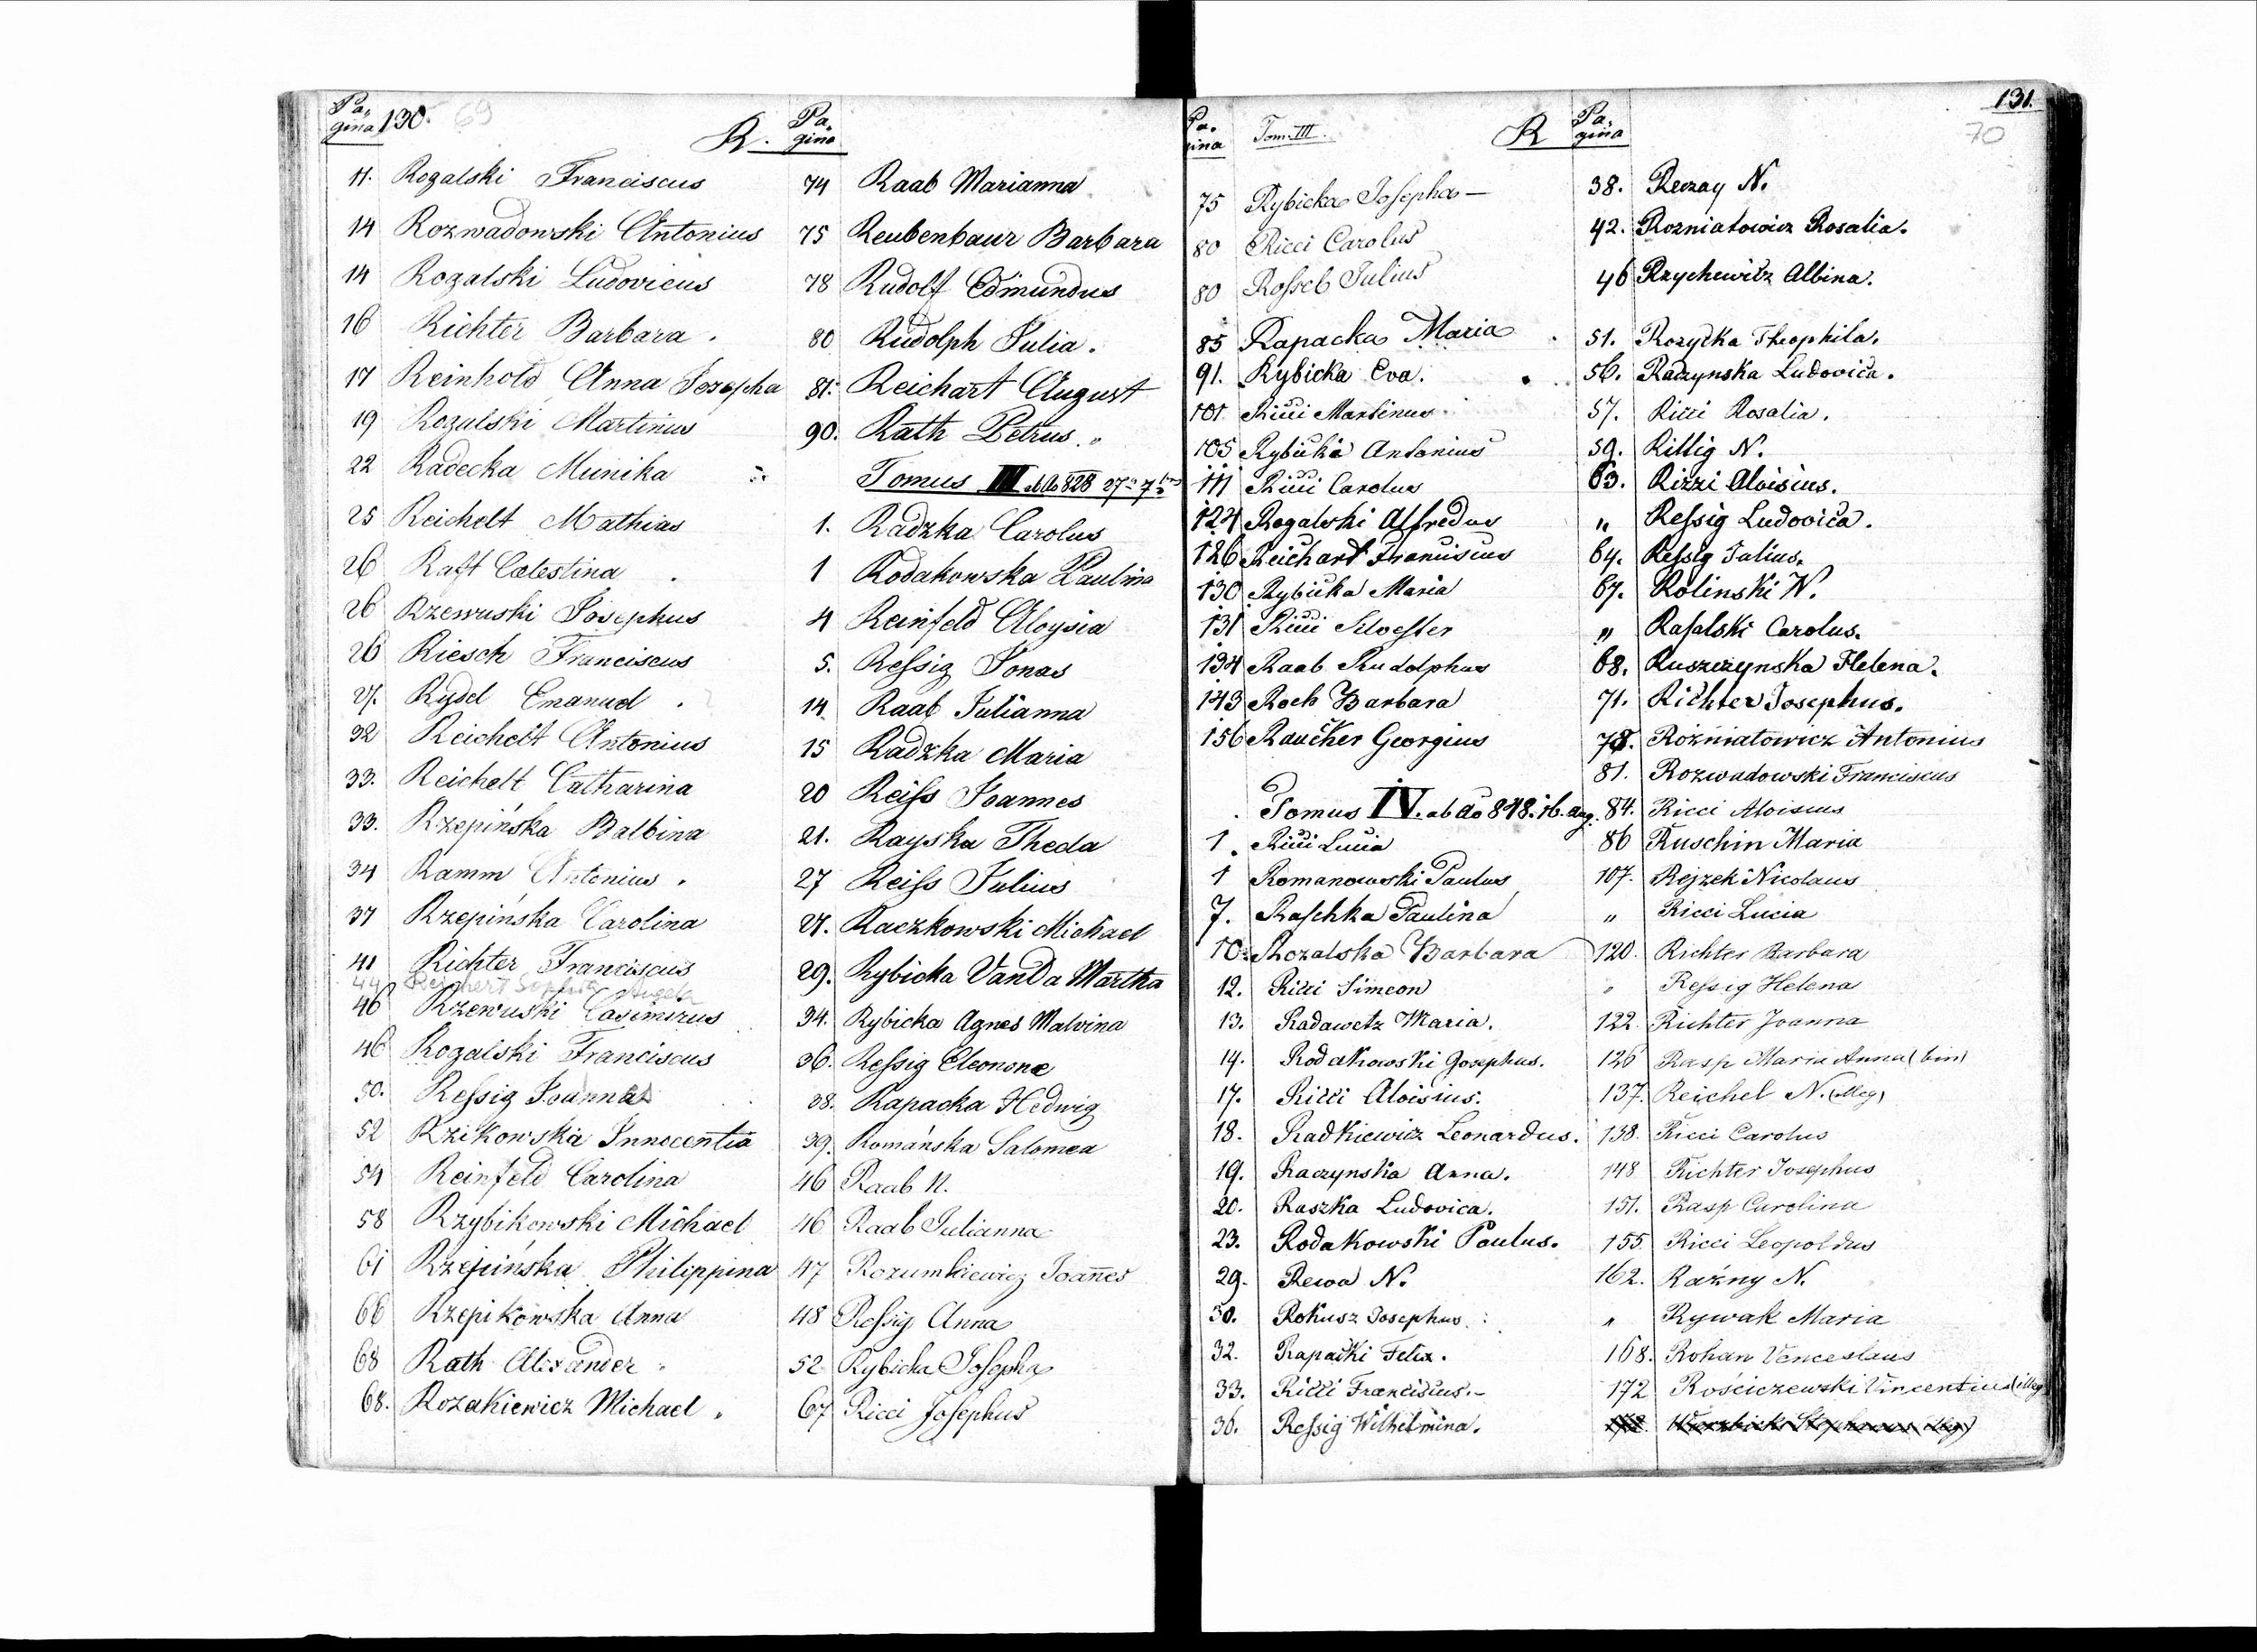 Pa-
gina 130. 69
R.
11. Rogalski Franciscus
14 Rozwadowski Antonius
14 Rogalski Ludovicus
16 Richter Barbara .
17 Reinhold Anna Josepha
19 Rogalski Martinus
22 Radecka Munika
25 Reichelt Mathias
26 Raft Cœlestina .
26 Rzewuski Josephus
26 Riesch Franciscus
27. Rysel Emanuel .
32 Reichelt Antonius
33. Reichelt Catharina
33. Rzepińska Balbina
34 Ramm Antonius .
37 Rzepińska Carolina
41 Richter Franciscus
44 Reichert Sophia Angela
46 Rzewuski Casimirus
46 Rogalski Franciscus
50. Reſsig Joannes
52 Rzikowska Innocentia
54 Reinfeld Carolina
58 Rzybikowski Michael
61 Rzepińska Philippina
66 Rzepikowska Anna
68 Rath Alexander
68. Rozakiewicz Michael .
Pa-
gina
74 Raab Marianna
75 Reubenbaur Barbara
78 Rudolf Edmundus
80 Rudolph Julia .
81. Reichart August
90. Rath Petrus.
Tomus III ab Ao 828 27ª 7b
1. Radzka Carolus
1 Rodakowska Paulina
4 Reinfeld Aloysia
5. Reſsig Jonas
14 Raab Julianna
15 Radzka Maria
20 Reiſs Joannes
21. Rayska Theda
27 Reiſs Julius
27. Raczkowski Michael
29. Rybicka Vanda Martha
34. Rybicka Agnes Malvina
36. Reſsig Eleonone
38. Rapacka Hedwig
39. Románska Salomea
46 Raab N.
46 Raab Julianna
47 Rozumkiewicz Joannes
48 Reſsig Anna
52 Rybicka Joſepha
67 Ricci Joſephus
Pa-
gina
Tom. III.
R
75 Rybicka Joſepha —
80 Ricci Carolus
80 Roſseb Julius
85 Rapacka Maria .
91. Rybicka Eva.
101 Ricci Martinus
105 Rybicki Antonius
111 Ricci Carolus
124 Rogalski Alfredus
126 Reichart Franciscus
130 Rybicka Maria
131 Ricci Silvester
134 Raab Rudolphus
143 Roch Barbara
156 Raucker Georgius
Tomus IV. ab ao 848. 16. aug.
1. Ricci Lucia
1 Romanowski Paulus
7. Raſchka Paulina
10. Rozalska Barbara
12. Ricci Simeon
13. Radawetz Maria.
14. Rodakowski Josephus.
17. Ricci Aloisius.
18. Radkiewicz Leonardus.
19. Raczynska Anna.
20. Raszka Ludovica.
23. Rodakowski Paulus.
29. Rewa N.
30. Rokusz Josephus
32. Rapacki Felix.
33. Ricci Franciscus.-
36. Reſsig Wilhelmina.
Pa-
gina
131.
70
38. Reczay N.
42. Rozniatowicz Rosalia.
46 Rzychewitz Albina.
51. Rozycka Theophila.
56. Raczynska Ludovica.
57. Ricci Rosalia.
59. Rittig N.
63. Rizzi Aloisius.
" Reſsig Ludovica.
64. Reſsig Julius.
67. Rolinski W.
" Rafalski Carolus.
68. Ruszczynska Helena.
71. Richter Josephus.
78. Rozniatowicz Antonius
81. Rozwadowski Franciscus
84. Ricci Aloisius
86 Ruschin Maria
107. Rejzek Nicolaus
" Ricci Lucia
120. Richter Barbara
" Reſsig Helena
122. Richter Joanna
126 Rasp Maria Anna (bin)
137. Reichel N. (illeg)
138. Ricci Carolus
148 Richter Josephus
151. Rasp Carolina
155. Ricci Leopoldus
162. Raźny N.
" Rywak Maria
168. Rohan Venceslaus
172 Rościczewski Vincentius (illeg